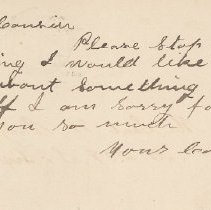 Cousin
Please Stop
ing I would like
about something
ff I am sorry fo
you so much
Yours